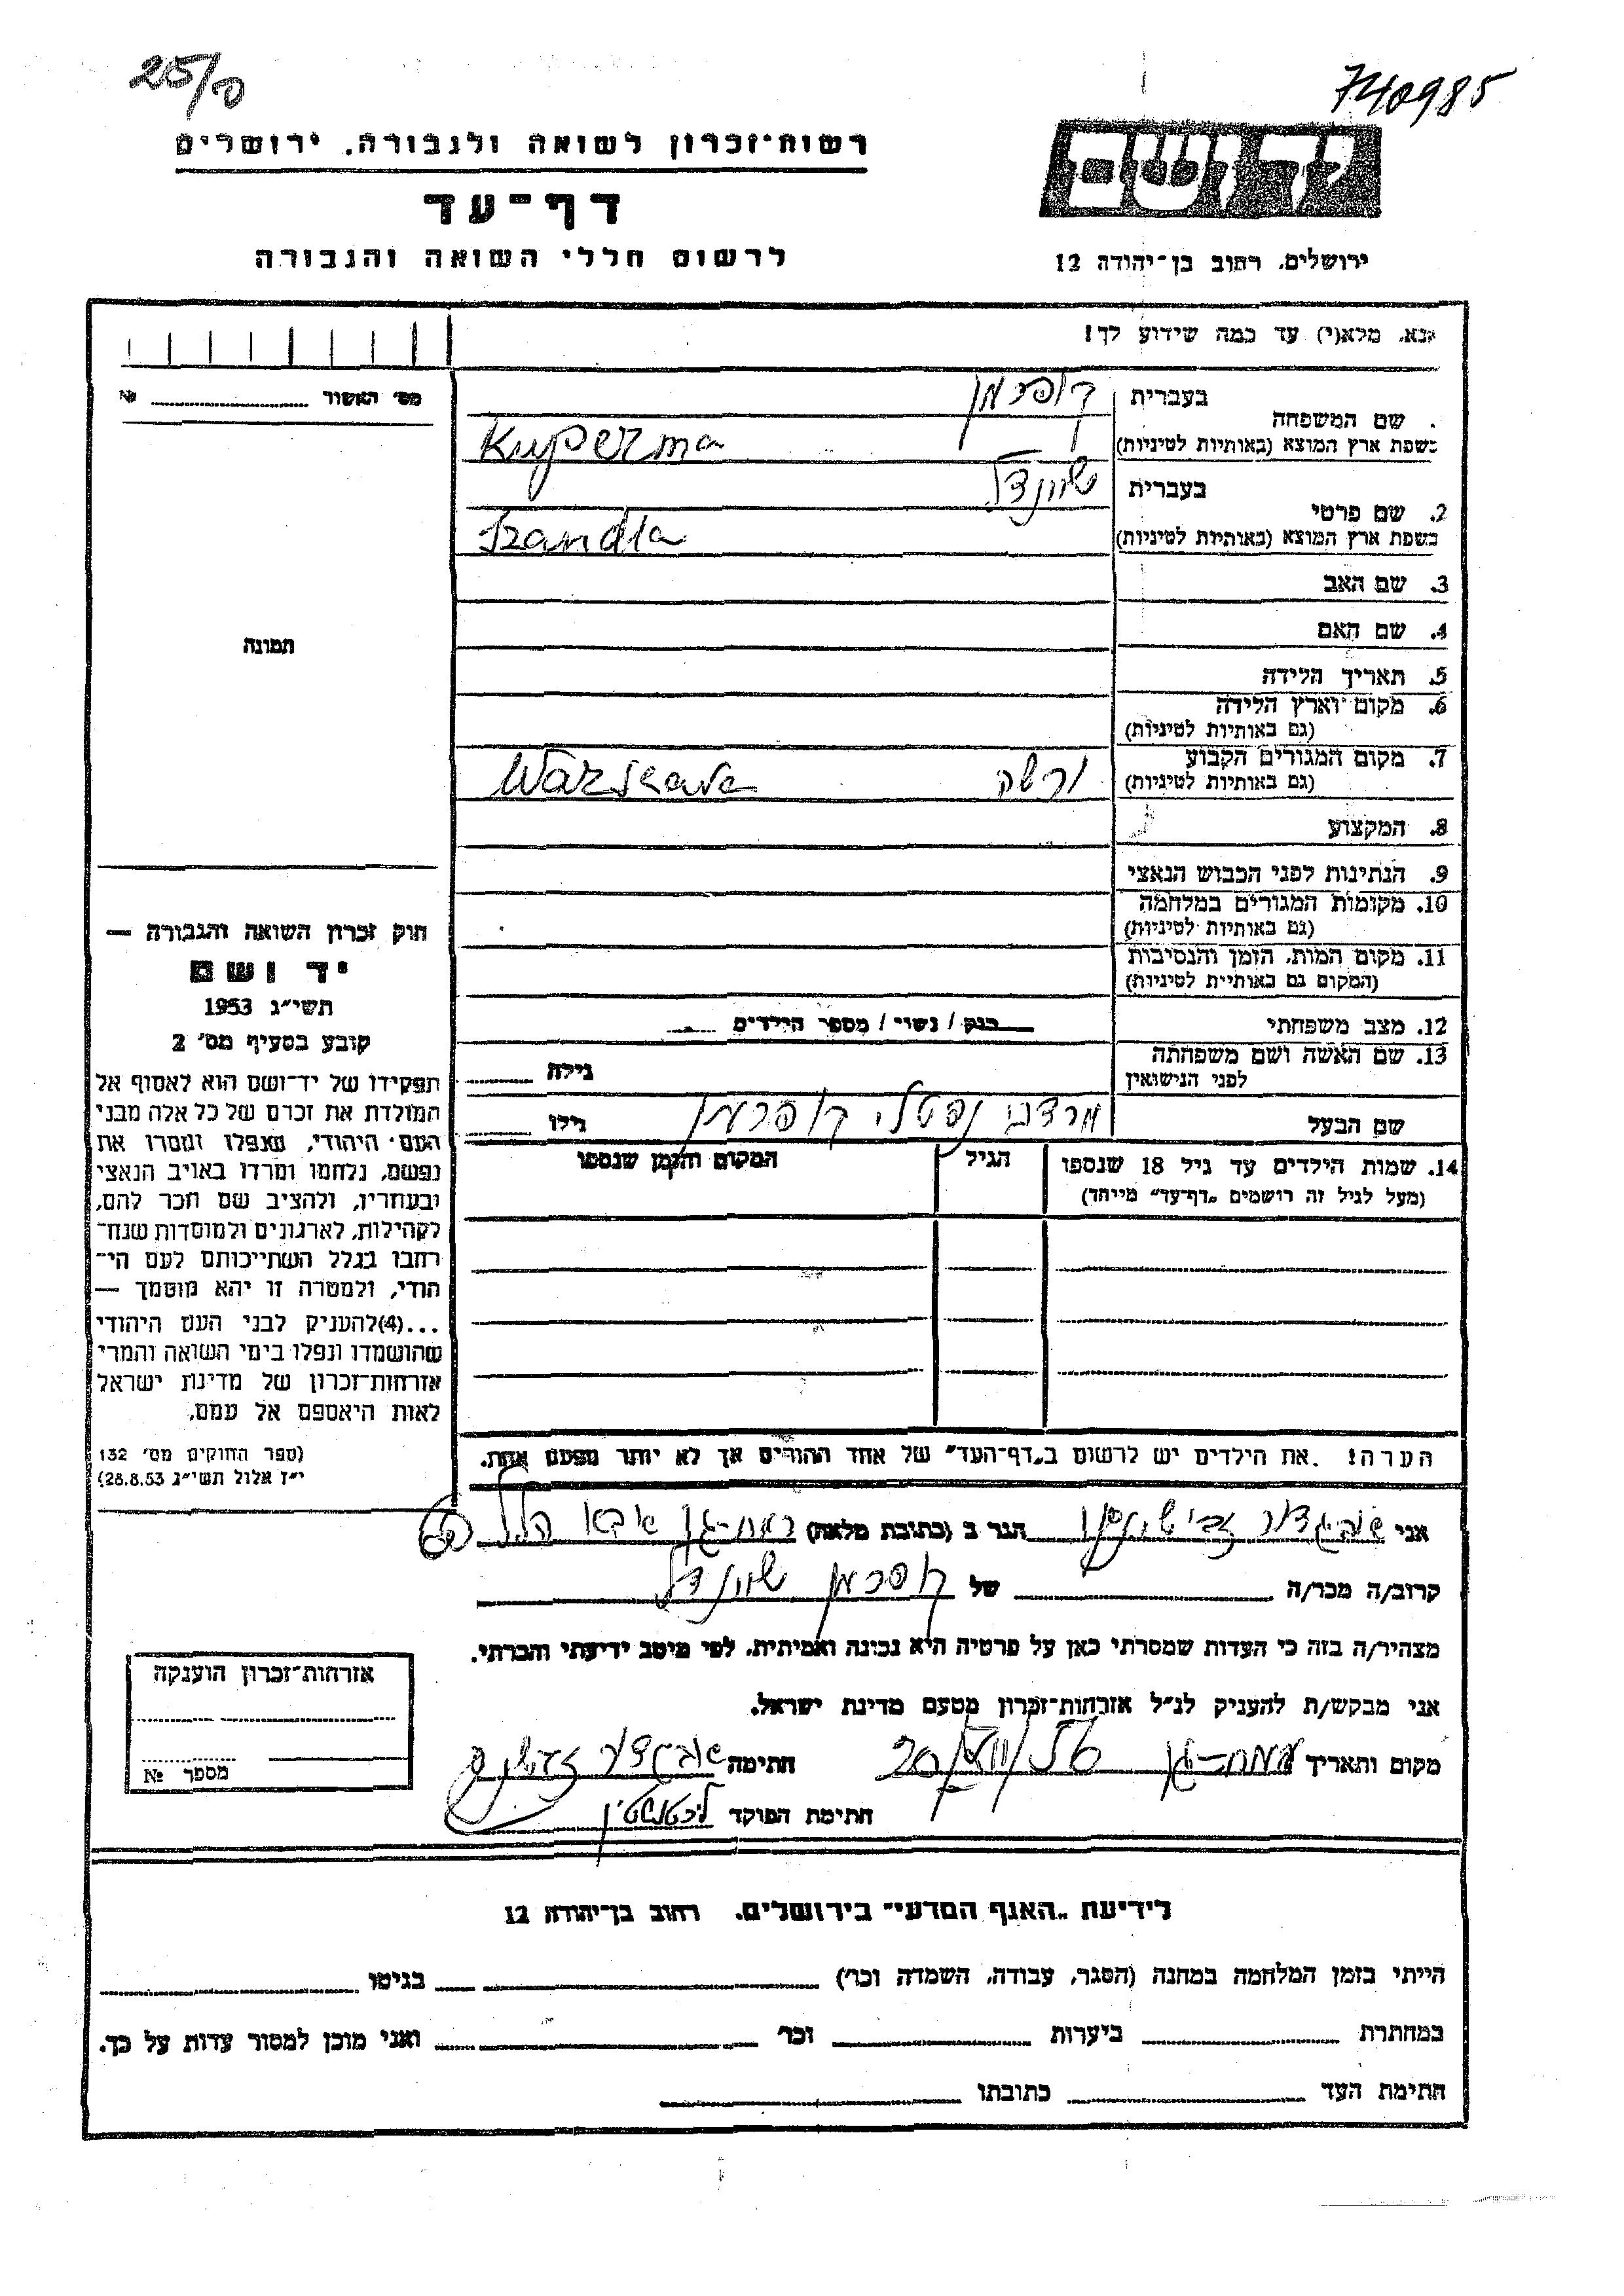 25/ס
740985
רשות־זכרון לשואה ולגבורה, ירושלים
דף־עד
לרשום חללי השואה והגבורה
יד ושם
ירושלים, רחוב בן־יהודה 12
נא, מלא(י) עד כמה שידוע לך!
מס׳ האשור №
. שם המשפחה
בעברית קופרמן
בשפת ארץ המוצא (באותיות לטיניות) Kuperma
2. שם פרטי
בעברית שיינדל
בשפת ארץ המוצא (באותיות לטיניות) Szandla
3. שם האב
4. שם האם
5. תאריך הלידה
6. מקום וארץ הלידה
(גם באותיות לטיניות)
7. מקום המגורים הקבוע ורשה Warszawa
(גם באותיות לטיניות)
8. המקצוע
9. הנתינות לפני הכבוש הנאצי
10. מקומות המגורים במלחמה
(גם באותיות לטיניות)
11. מקום המות, הזמן והנסיבות
(המקום גם באותיית לטיניות)
12. מצב משפחתי רוק / נשוי / מספר הילדים
13. שם האשה ושם משפחתה
לפני הנישואין גילה
שם הבעל מרדכי נפטלי קופרמן גילו
14. שמות הילדים עד גיל 18 שנספו הגיל המקום והזמן שנספו
(מעל לגיל זה רושמים „דף־עד״ מייחד)
הערה! את הילדים יש לרשום ב„דף־העד״ של אחד ההורים אך לא יותר מפעם אחת.
תמונה
חוק זכרון השואה והגבורה —
יד ושם
תשי״ג 1953
קובע בסעיף מס׳ 2
תפקידו של יד־ושם הוא לאסוף אל
המולדת את זכרם של כל אלה מבני
העם היהודי, שנפלו ומסרו את
נפשם, נלחמו ומרדו באויב הנאצי
ובעוזריו, ולהציב שם וזכר להם,
לקהילות, לארגונים ולמוסדות שנח־
רבו בגלל השתייכותם לעם הי־
הודי, ולמטרה זו יהא מוסמך —
...(4)להעניק לבני העם היהודי
שהושמדו ונפלו בימי השואה והמרי
אזרחות־זכרון של מדינת ישראל
לאות היאספם אל עמם.
(ספר החוקים מס׳ 132
י״ז אלול תשי״ג 28.8.53)
אני אביגדור הגר ב (כתובת מלאה) רמת-גן אבא הלל 60
קרוב/ה מכר/ה של קופרמן שיינדל
מצהיר/ה בזה כי העדות שמסרתי כאן על פרטיה היא נכונה ואמיתית, לפי מיטב ידיעתי והכרתי.
אני מבקש/ת להעניק לנ״ל אזרחות־זכרון מטעם מדינת ישראל.
מקום ותאריך רמת-גן 20 חתימה אביגדור
חתימת הפוקד ליכטנשטיין
אזרחות־זכרון הוענקה
מספר №
לידיעת „האגף המדעי״ בירושלים, רחוב בן־יהודה 12
הייתי בזמן המלחמה במחנה (הסגר, עבודה, השמדה וכר׳) בגיטו
במחתרת ביערות וכר׳ ואני מוכן למסור עדות על כך.
חתימת העד כתובתו